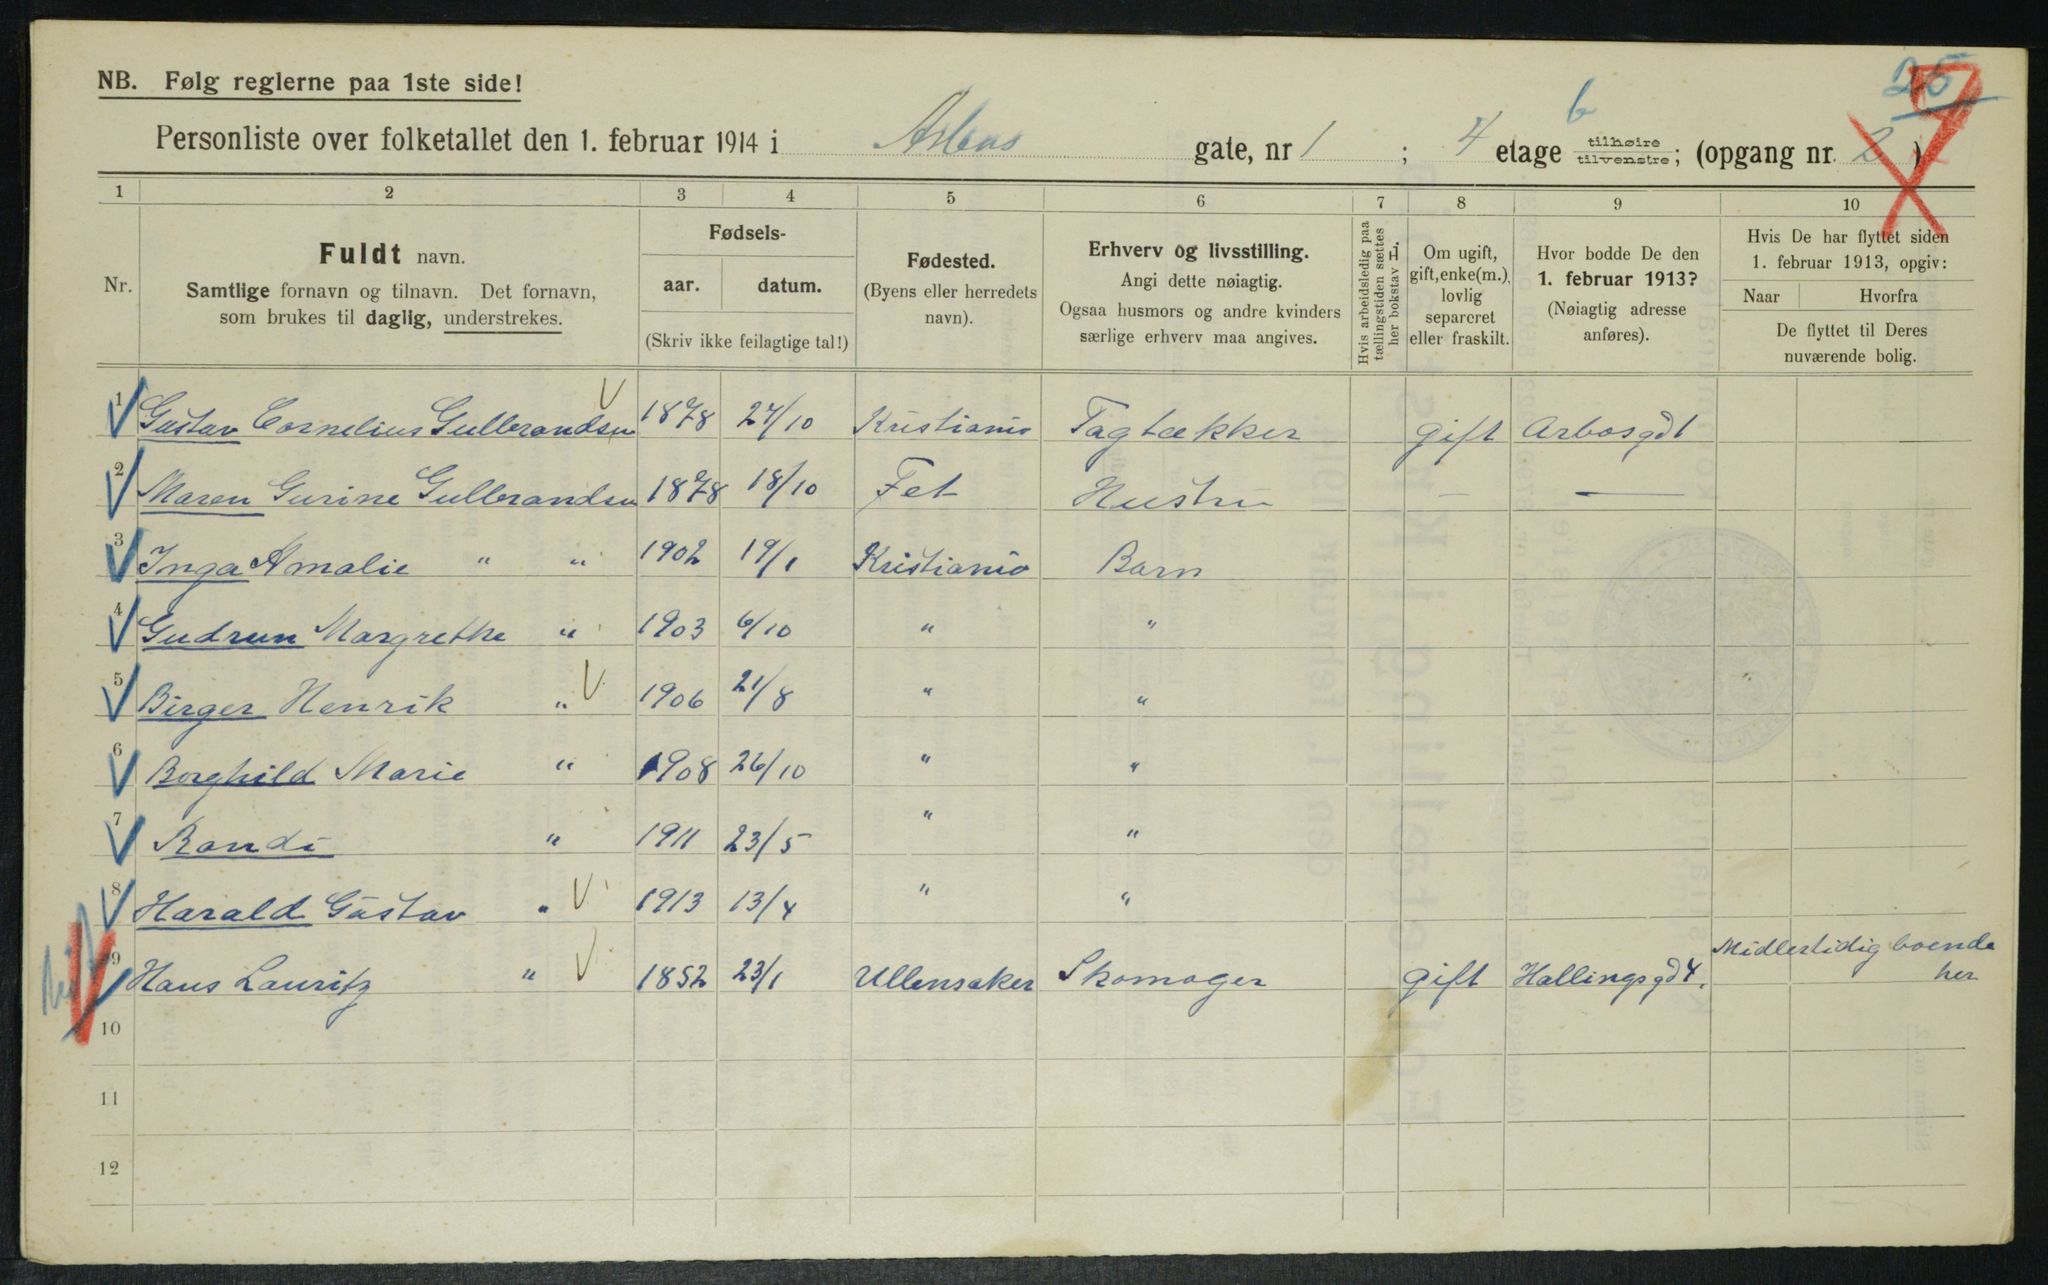 NB. Følg reglerne paa 1ste side!
25
Personliste over folketallet den 1. februar 1914 i Arbos gate, nr 1 ; 4 etage b tilhøire tilvenstre; (opgang nr. 2)
1 2 3 4 5 6 7 8 9 10
Nr.
Fuldt navn.
Samtlige fornavn og tilnavn. Det fornavn,
som brukes til daglig, understrekes.
Fødsels-
aar. datum.
(Skriv ikke feilagtige tal!)
Fødested.
(Byens eller herredets
navn).
Erhverv og livsstilling.
Angi dette nøiagtig.
Ogsaa husmors og andre kvinders
særlige erhverv maa angives.
Hvis arbeidsledig paa
tællingstiden sættes
her bokstav L.
Om ugift,
gift, enke(m.),
lovlig
separeret
eller fraskilt.
Hvor bodde De den
1. februar 1913?
(Nøiagtig adresse
anføres).
Hvis De har flyttet siden
1. februar 1913, opgiv:
Naar Hvorfra
De flyttet til Deres
nuværende bolig.
1 Gustav Cornelius Gulbrandsen 1878 27/10 Kristiania Tagtækker gift Arbosgd 1
2 Maren Gurine Gulbrandsen 1878 18/10 Fet Hustru — —
3 Inga Amalie " " 1902 19/1 Kristiania Barn
4 Gudrun Margrethe " 1903 6/10 " "
5 Birger Henrik " 1906 21/8 " "
6 Borghild Marie " 1908 26/10 " "
7 Randi " 1911 23/5 " "
8 Harald Gustav " 1913 13/4 " "
9 Hans Lauritz " 1852 23/1 Ullensaker Skomager gift Hallingsgd 4. Midlertidig boende
her
10
11
12